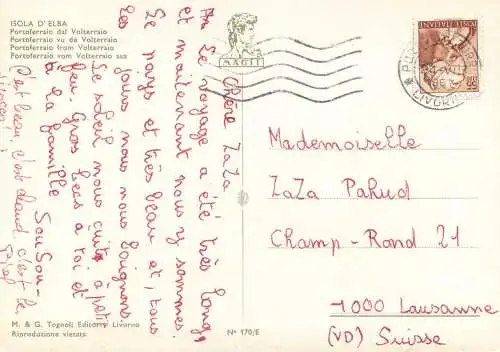 ISOLA D' ELBA
Portoferraio dal Volterraio
Portoferraio vu de Volterraio
Portoferraio from Volterraio
Portoferraio vom Volterraio aus
MAGIT
POSTE ITALIANE
LIVORNO
Chère ZaZa
Le voyage a été très long,
et maintenant nous y sommes.
Le pays et très beau et, tous
les jours nous nous baignons
Le soleil nous cuit à petit
feu. Gros becs à toi et
à la famille
SouSou-
C'est beau, c'est chaud c'est le
Mademoiselle
ZaZa Pahud
Champ-Rond 21
1000 Lausanne
(VD) Suisse
M. & G. Tognoli Editori Livorno
Riproduzione vietata
N° 170/E